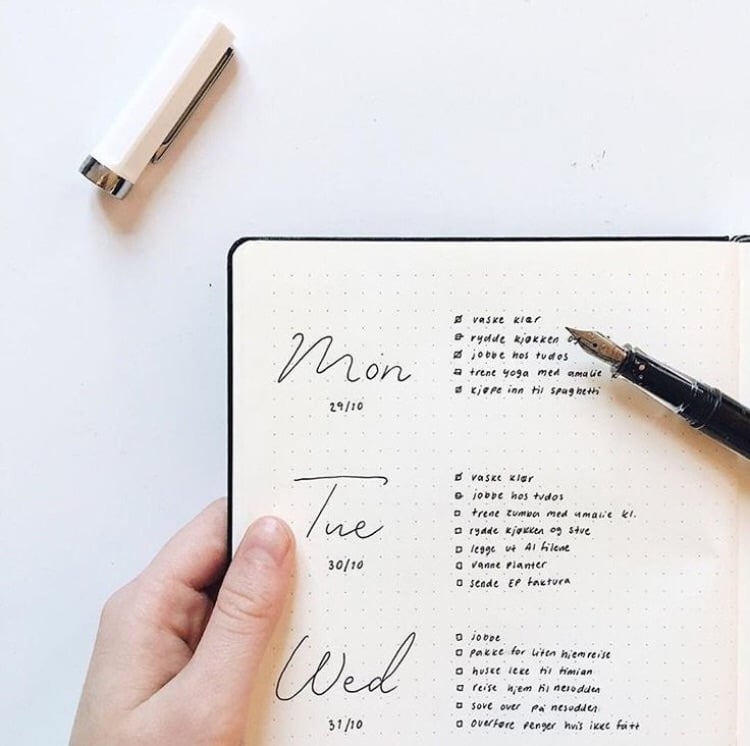 Mon
29/10
vaske klær
rydde kjøkken og
jobbe hos tudos
trene yoga med amalie
kjøpe inn til spaghetti
Tue
30/10
vaske klær
jobbe hos tudos
trene zumba med amalie kl.
rydde kjøkken og stue
legge ut AI filene
vanne planter
sende EP faktura
Wed
31/10
jobbe
pakke for liten hjemreise
huske leke til timian
reise hjem til nesodden
sove over på nesodden
overføre penger hvis ikke fått